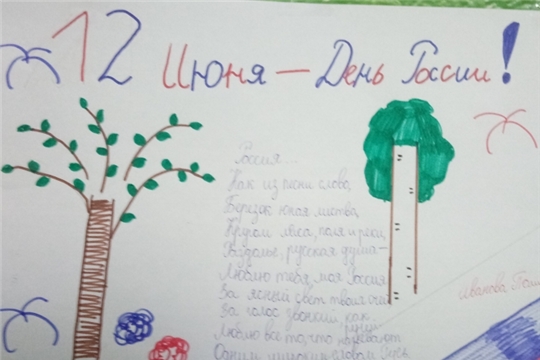 12 Июня — День России!
Россия...
Как из песни слово,
Березок юная листва,
Кругом леса, поля и реки,
Раздолье, русская душа —
Люблю тебя, моя Россия
За ясный свет твоих очей
За голос звонкий как
ручей
Люблю
Одним словом Русь
Иванова